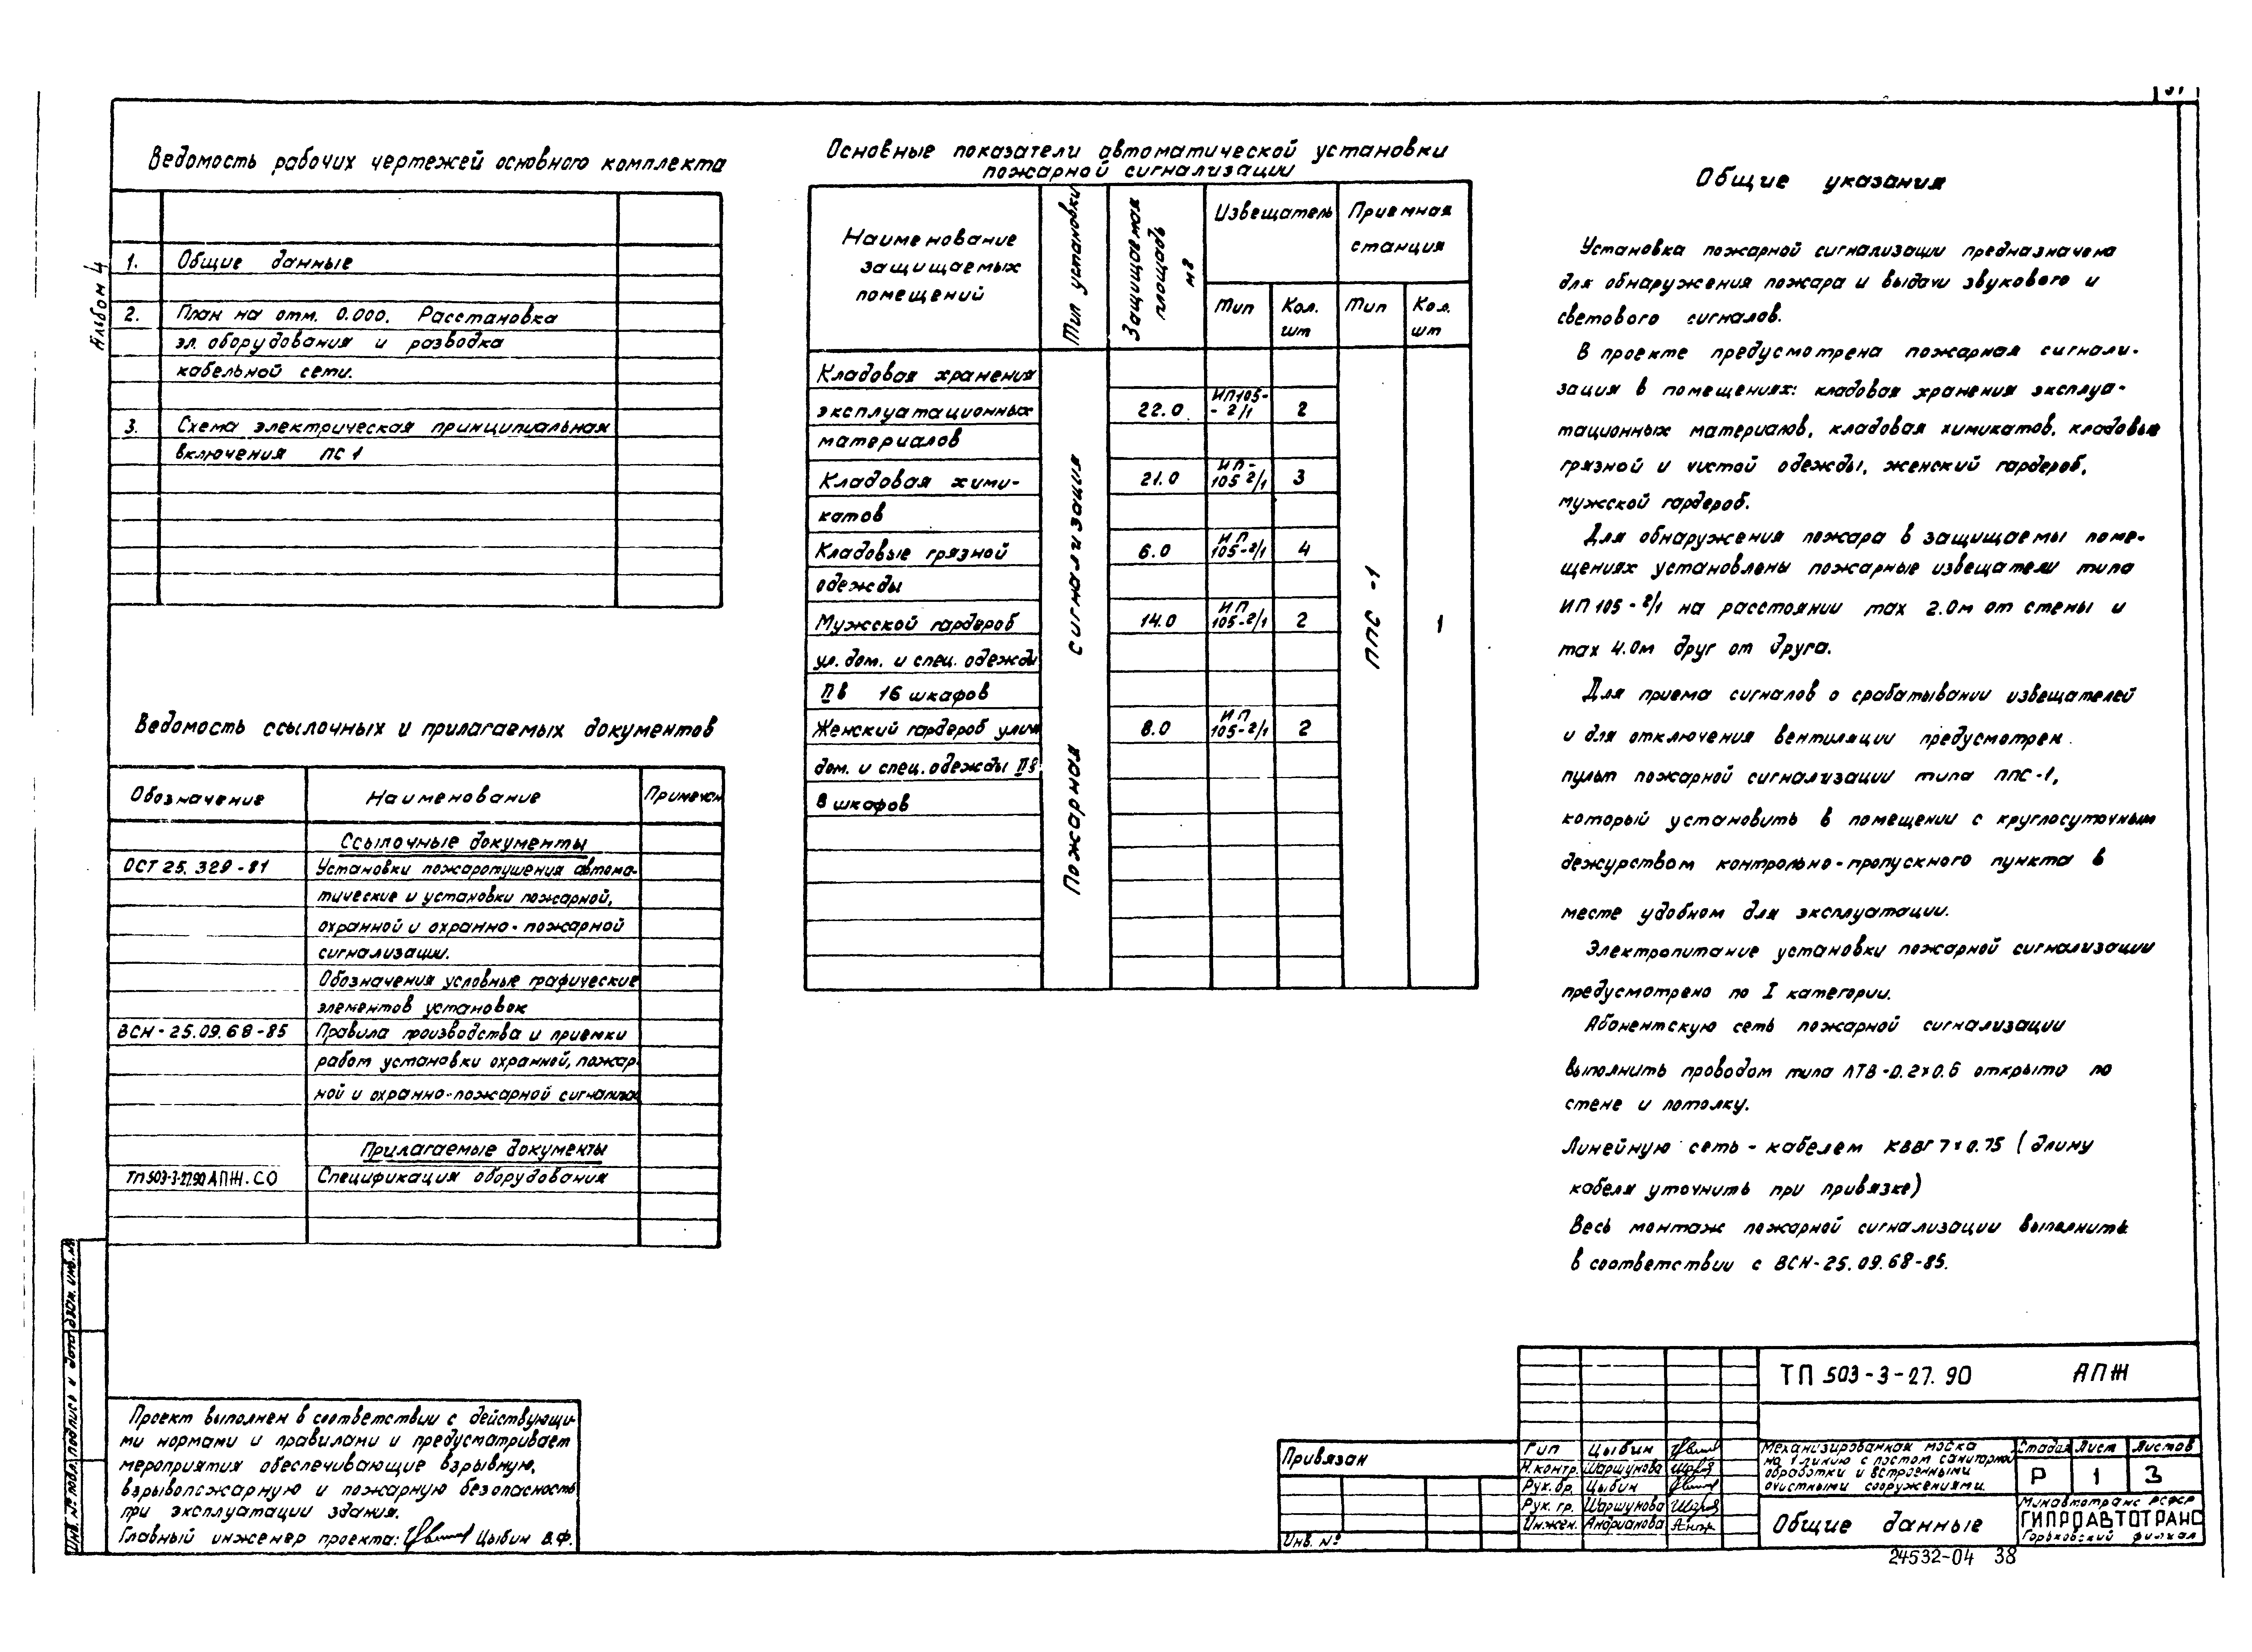 Альбом 4
Ведомость рабочих чертежей основного комплекта
1. Общие данные
2. План на отм. 0.000. Расстановка
эл. оборудования и разводка
кабельной сети.
3. Схема электрическая принципиальная
включения ПС 1
Ведомость ссылочных и прилагаемых документов
Обозначение Наименование Примечан
Ссылочные документы
ОСТ 25. 329-81 Установки пожаротушения автома-
тические и установки пожарной,
охранной и охранно-пожарной
сигнализации.
Обозначения условные графические
элементов установок
ВСН-25.09.68-85 Правила производства и приемки
работ установки охранной, пожар-
ной и охранно-пожарной
Прилагаемые документы
ТП 503-3-27.90 АПЖ.СО Спецификация оборудования
Основные показатели автоматической установки
пожарной сигнализации
Наименование
защищаемых
помещений
Тип установки
Защищаемая
площадь
м²
Извещатель Приемная
станция
Тип Кол. шт Тип Кол. шт
Пожарная сигнализация
ППС-1
1
Кладовая хранения
эксплуатационных 22.0 ИП105-2/1 2
материалов
Кладовая хими- 21.0 ИП-105 2/1 3
катов
Кладовые грязной 6.0 ИП 105-2/1 4
одежды
Мужской гардероб 14.0 ИП 105-2/1 2
ул. дом. и спец. одежды
IIв 16 шкафов
Женский гардероб улич 8.0 ИП 105-2/1 2
дом. и спец. одежды IIв
8 шкафов
Общие указания
Установка пожарной сигнализации предназначена
для обнаружения пожара и выдачи звукового и
светового сигналов.
В проекте предусмотрена пожарная сигнали-
зация в помещениях: кладовая хранения эксплуа-
тационных материалов, кладовая химикатов, кладовые
грязной и чистой одежды, женский гардероб,
мужской гардероб.
Для обнаружения пожара в защищаемы поме-
щениях установлены пожарные извещатели типа
ИП 105-2/1 на расстоянии max 2.0м от стены и
max 4.0м друг от друга.
Для приема сигналов о срабатывании извещателей
и для отключения вентиляции предусмотрен
пульт пожарной сигнализации типа ППС-1,
который установить в помещении с круглосуточным
дежурством контрольно-пропускного пункта в
месте удобном для эксплуатации.
Электропитание установки пожарной сигнализации
предусмотрено по I категории.
Абонентскую сеть пожарной сигнализации
выполнить проводом типа ЛТВ-0.2×0.6 открыто по
стене и потолку.
Линейную сеть - кабелем КВВГ 7×0.75 (длину
кабеля уточнить при привязке)
Весь монтаж пожарной сигнализации выполнить
в соответствии с ВСН-25.09.68-85.
Проект выполнен в соответствии с действующи-
ми нормами и правилами и предусматривает
мероприятия обеспечивающие взрывную,
взрывопожарную и пожарную безопасность
при эксплуатации здания.
Главный инженер проекта: Цыбин В.Ф.
Инв. № подл. Подпись и дата Взам. инв. №
Привязан
Инв. №
ТП 503-3-27.90 АПЖ
Гип Цыбин
Н.контр. Шаршунова
Рук. бр. Цыбин
Рук. гр. Шаршунова
Инжен. Андрианова
Механизированная мойка
на 1 линию с постом санитарной
обработки и встроенными
очистными сооружениями.
Стадия Лист Листов
Р 1 3
Общие данные
Минавтотранс РСФСР
ГИПРОАВТОТРАНС
Горьковский филиал
24532-04 38